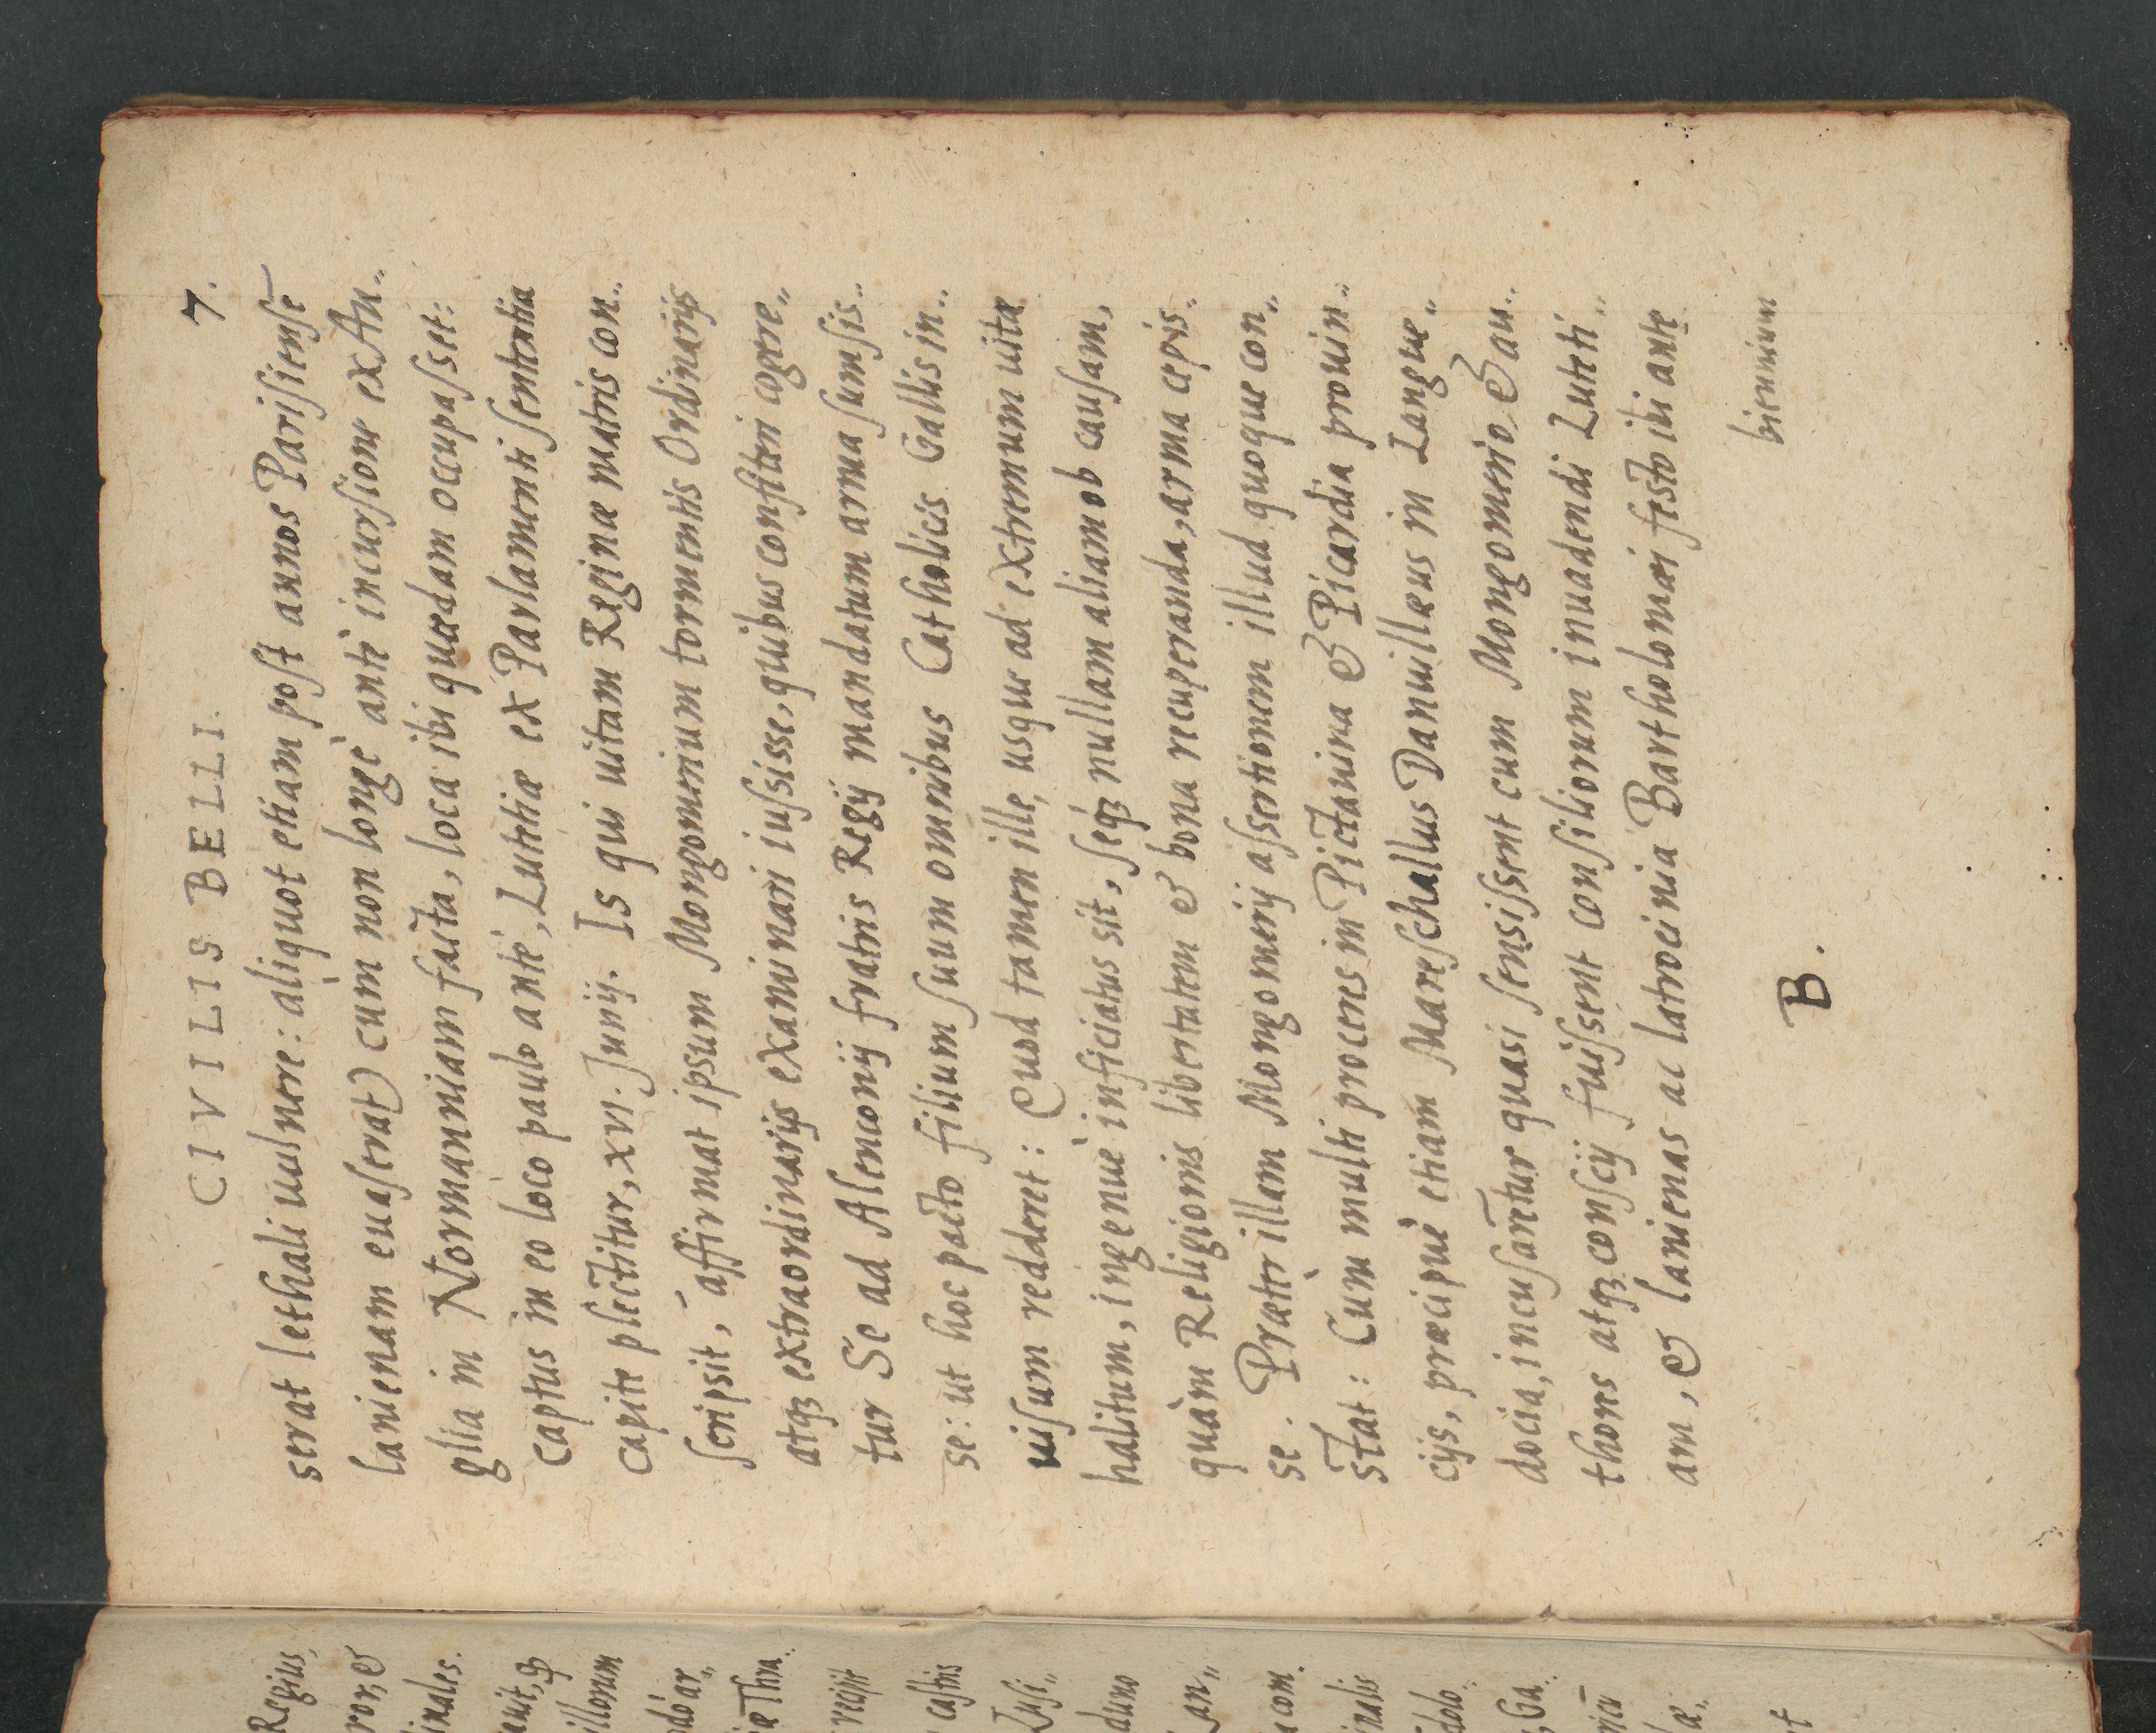 CIVILIS BELLI. 7.
serat lethali uulnere: aliquot etiam post annos Parisiensē
lanienam euaserat) cùm non longè antè incursione ex An„
glia in Normanniam facta, loca ibi quædam occupasset:
captus in eo loco paulo antè, Lutetiæ ex Parlamenti sententia
capite plectitur, xvi. Junij. Is qui uitam Reginæ matris con„
scripsit, affirmat ipsum Mongomerium tormentis Ordinarijs
atqꝫ extraordinarijs examinari iussisse, quibus confiteri cogere„
tur Se ad Alenconij fratris Regij mandatum arma sumsis„
se: ut hoc pacto filium suum omnibus Catholicis Gallis in„
uisum redderet: Quod tamen ille, usque ad extremum uitæ
halitum, ingenuè inficiatus sit, seqꝫ nullam aliam ob causam,
quàm Religionis libertatem & bona recuperanda, arma cepis„
se. Præter illam Mongomerij assertionem illud quoque con„
stat: Cùm multi proceres in Pictauina & Picardia prouin„
cijs, præcipuè etiam Mareschallus Danuillæus in Langue„
docia, incusarētur quasi sensissent cum Mongomerio, & au„
thores atqꝫ conscij fuissent consiliorum inuadendi Luteti„
am, & lanienas ac latrocinia Bartholomæi festo ibi ante
B. biennium
Regius,
ror, &
inales.
illorum
castris
duno
com„
inalis